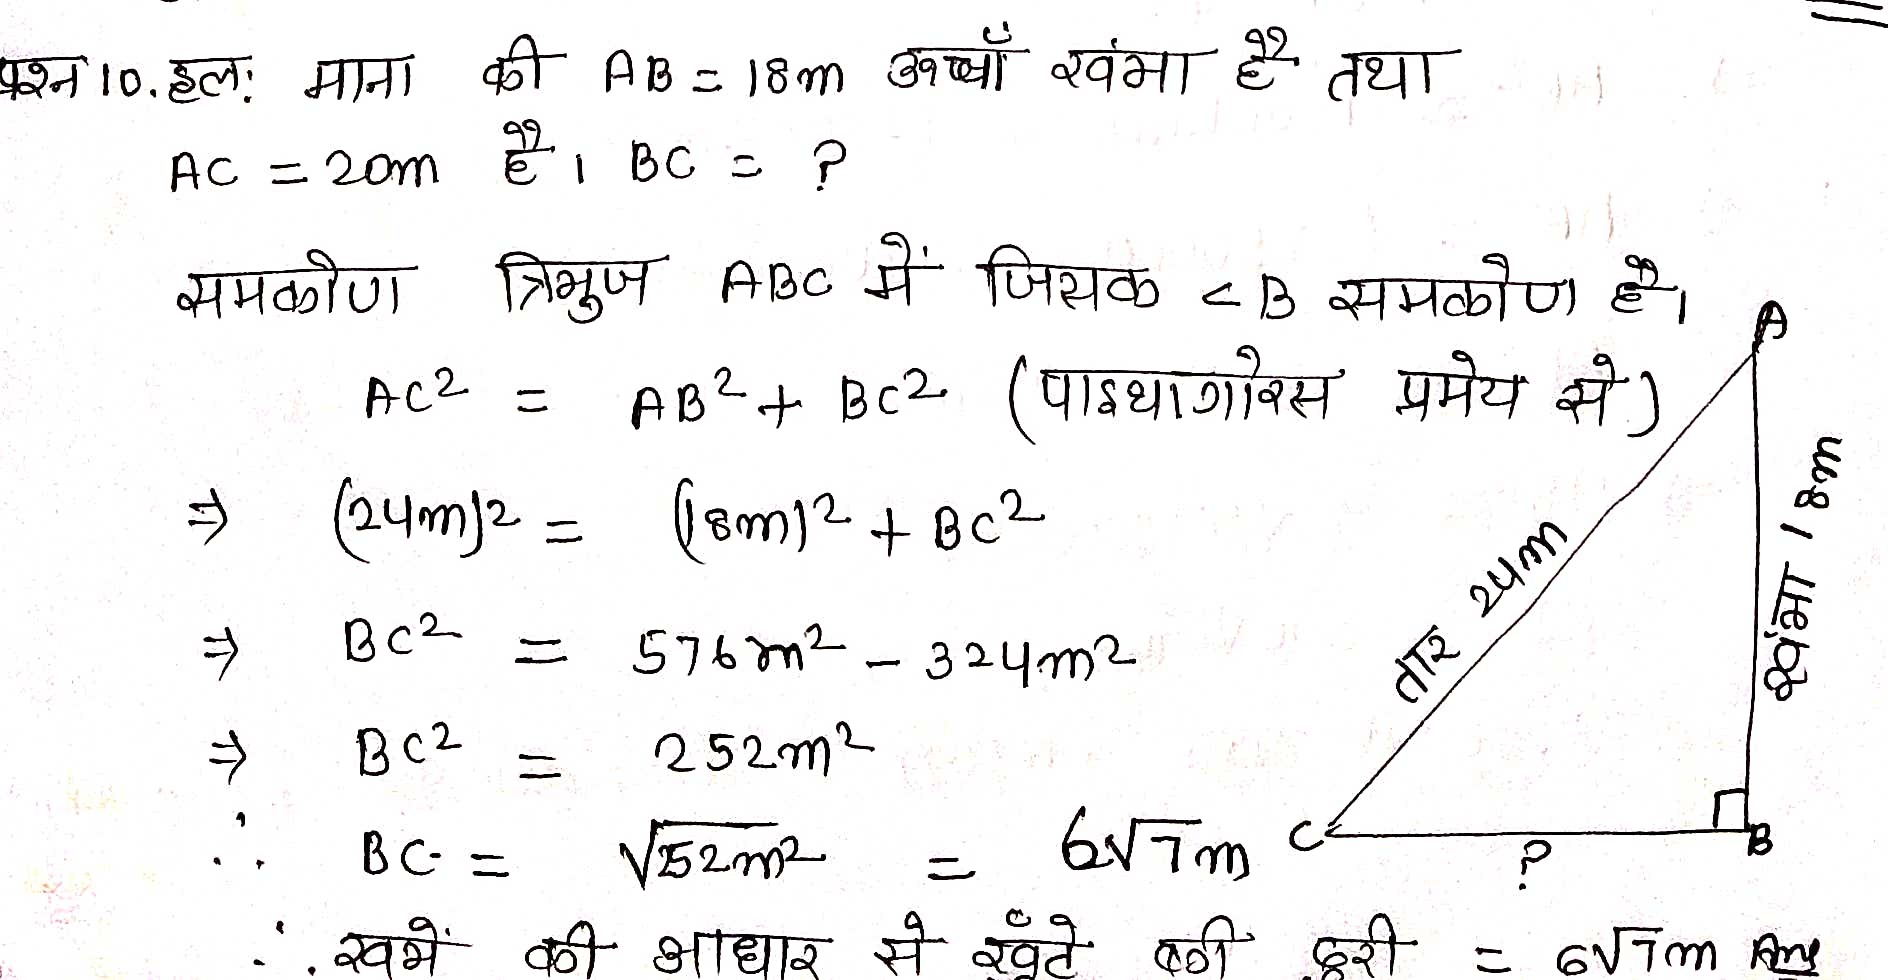 प्रश्न 10. हल: माना की AB = 18m ऊच्चाँ खंभा है तथा
AC = 20m है। BC = ?
समकोण त्रिभुज ABC में जिसक <B समकोण है।
AC² = AB² + BC² (पाइथागोरस प्रमेय से)
⇒ (24m)² = (18m)² + BC²
⇒ BC² = 576m² - 324m²
⇒ BC² = 252m²
∴ BC = √252m² = 6√7m
∴ खभें की आधार से खूँटे की दुरी = 6√7m Ans
A
तार 24m
खंभा 18m
C
?
B